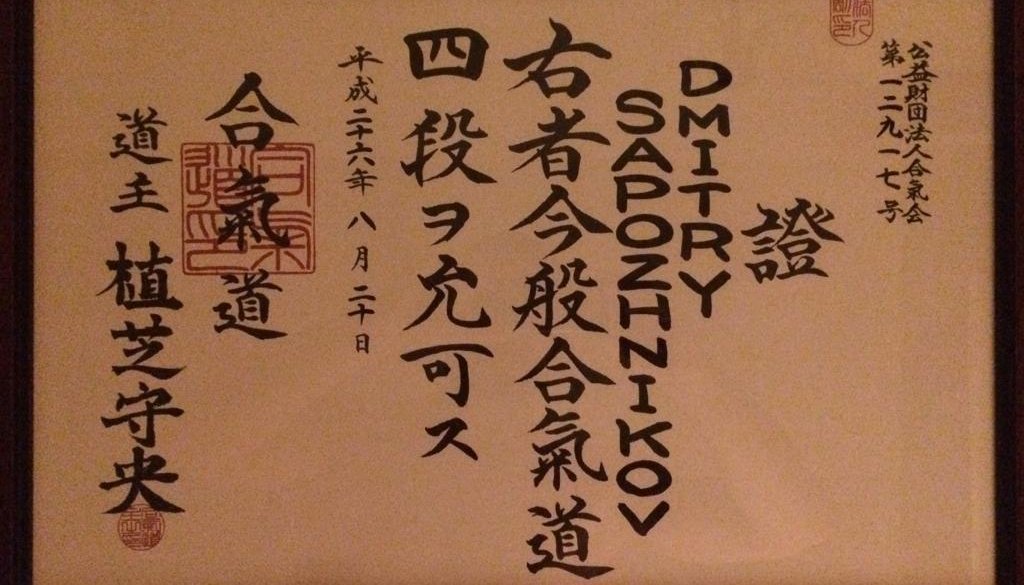 公益財団法人合氣会
第一二九一七号
證
DMITRY
SAPOZHNIKOV
右者今般合氣道
四段ヲ允可ス
平成二十六年八月二十日
合氣道
道主 植芝守央